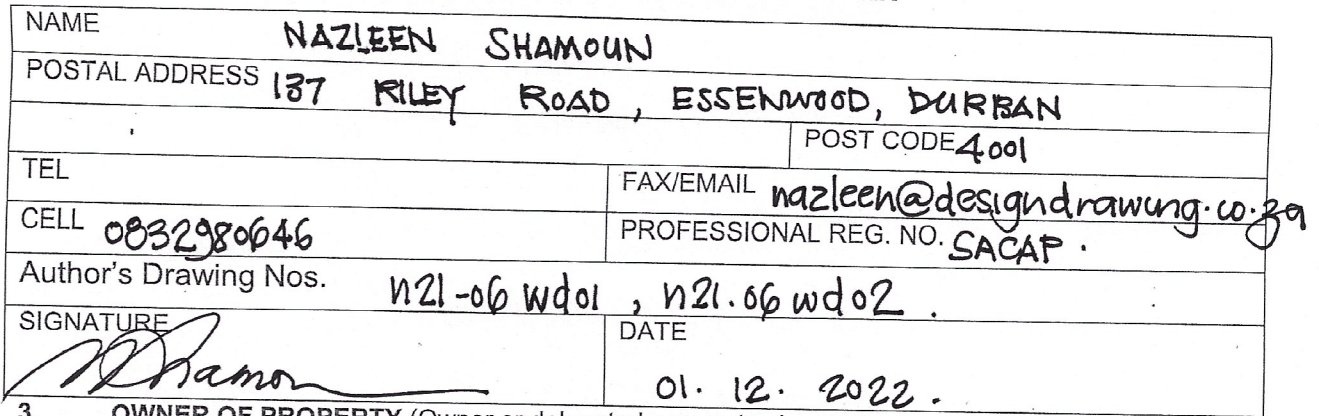 NAME NAZLEEN SHAMOUN
POSTAL ADDRESS 137 RILEY ROAD, ESSENWOOD, DURBAN
POST CODE 4001
TEL FAX/EMAIL nazleen@designdrawing.co.za
CELL 0832980646 PROFESSIONAL REG. NO. SACAP.
Author's Drawing Nos. n21-06 wd01, n21.06 wd02.
SIGNATURE DATE
Shamon 01. 12. 2022.
3 OWNER OF PROPERTY (Owner or